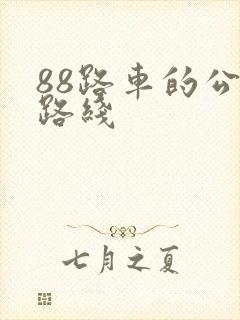 88路车的公
路线
七月之夏